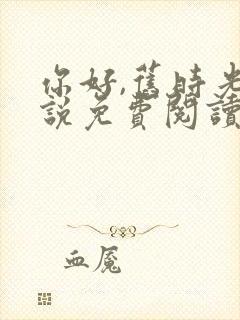 你好,舊時光
說免費閱讀
血魘